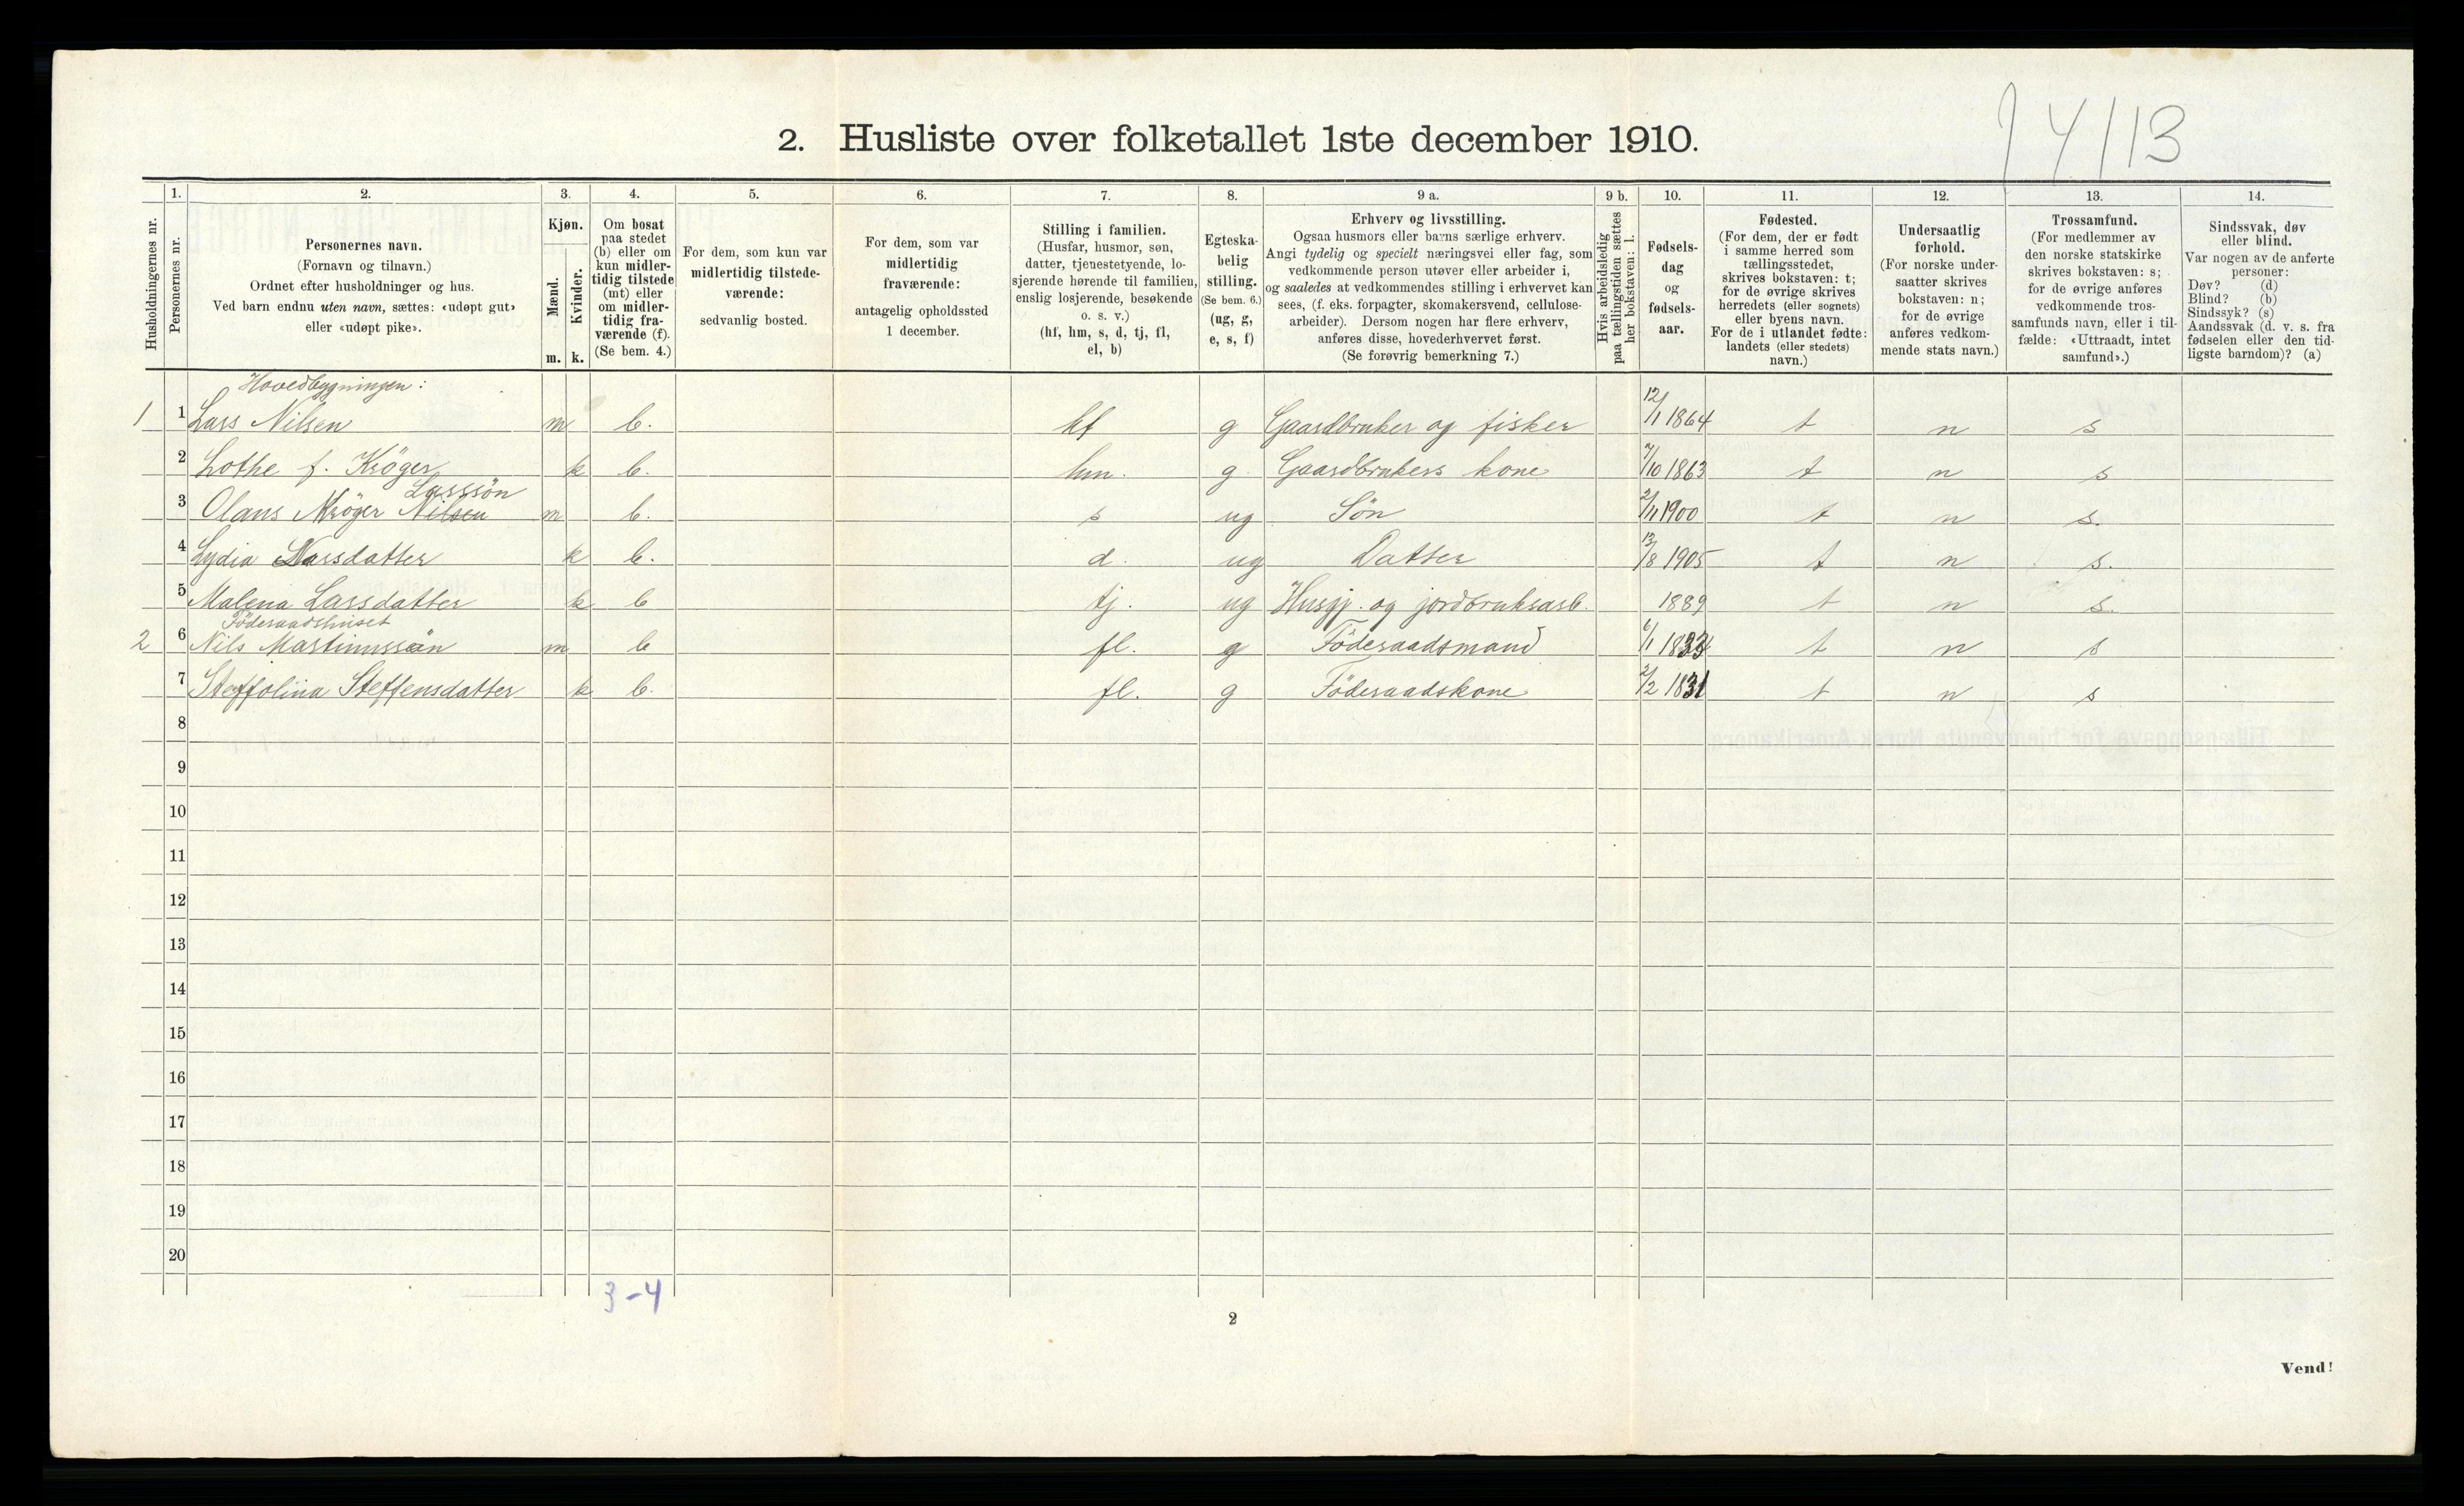 14/13
2. Husliste over folketallet 1ste december 1910.
Husholdningernes nr.
1.
Personernes nr.
2.
Personernes navn.
(Fornavn og tilnavn.)
Ordnet efter husholdninger og hus.
Ved barn endnu uten navn, sættes: «udøpt gut»
eller «udøpt pike».
3.
Kjøn.
Mænd.
Kvinder.
m. k.
4.
Om bosat
paa stedet
(b) eller om
kun midler-
tidig tilstede
(mt) eller
om midler-
tidig fra-
værende (f).
(Se bem. 4.)
5.
For dem, som kun var
midlertidig tilstede-
værende:
sedvanlig bosted.
6.
For dem, som var
midlertidig
fraværende:
antagelig opholdssted
1 december.
7.
Stilling i familien.
(Husfar, husmor, søn,
datter, tjenestetyende, lo-
sjerende hørende til familien,
enslig losjerende, besøkende
o. s. v.)
(hf, hm, s, d, tj, fl,
el, b)
8.
Egteska-
belig
stilling.
(Se bem. 6.)
(ug, g,
e, s, f)
9 a.
Erhverv og livsstilling.
Ogsaa husmors eller barns særlige erhverv.
Angi tydelig og specielt næringsvei eller fag, som
vedkommende person utøver eller arbeider i,
og saaledes at vedkommendes stilling i erhvervet kan
sees, (f. eks. forpagter, skomakersvend, cellulose-
arbeider). Dersom nogen har flere erhverv,
anføres disse, hovederhvervet først.
(Se forøvrig bemerkning 7.)
9 b.
Hvis arbeidsledig
paa tællingstiden sættes
her bokstaven: l.
10.
Fødsels-
dag
og
fødsels-
aar.
11.
Fødested.
(For dem, der er født
i samme herred som
tællingsstedet,
skrives bokstaven: t;
for de øvrige skrives
herredets (eller sognets)
eller byens navn.
For de i utlandet fødte:
landets (eller stedets)
navn.)
12.
Undersaatlig
forhold.
(For norske under-
saatter skrives
bokstaven: n;
for de øvrige
anføres vedkom-
mende stats navn.)
13.
Trossamfund.
(For medlemmer av
den norske statskirke
skrives bokstaven: s;
for de øvrige anføres
vedkommende tros-
samfunds navn, eller i til-
fælde: «Uttraadt, intet
samfund».)
14.
Sindssvak, døv
eller blind.
Var nogen av de anførte
personer:
Døv? (d)
Blind? (b)
Sindssyk? (s)
Aandssvak (d. v. s. fra
fødselen eller den tid-
ligste barndom)? (a)
Hovedbygningen:
1 1 Lars Nilsen m b. hf g Gaardbruker og fisker 12/1 1864 t n s
2 Lothe f. Krøger k b. hm. g. Gaardbrukers kone 7/10 1863 t n s
Larssøn
3 Olaus Krøger Nilsen m b. s ug Søn 2/11 1900 t n s.
4 Lydia Larsdatter k b. d. ug Datter 13/8 1905 t n s.
5 Malena Larsdatter k b tj. ug Husgj. og jordbruksarb. 1889 t n s.
Föderaadshuset
2 6 Nils Martinussøn m b fl. g Föderaadsmand 6/1 1833 t n s
7 Steffolina Steffensdatter k b. fl. g Föderaadskone 2/2 1831 t n s
8
9
10
11
12
13
14
15
16
17
18
19
20
3-4
2
Vend!